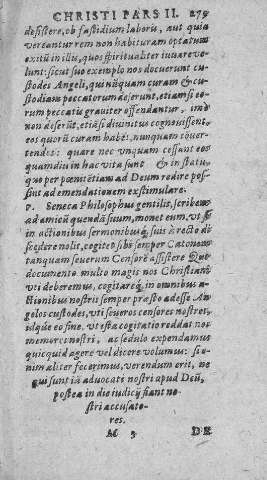 CHRISTI PARS II. 279
desistere, ob fastidium laboris, aut quia
vereantur rem non habituram optatum
exitũ in illis, quos spiritualiter iuuare vo-
lunt: sicut suo exemplo nos docuerunt cu-
stodes Angeli, qui nũquam curam & cu-
stodiam peccatorum deserunt, etiamsi eo-
rum peccatis grauiter offendantur, imò
non deserũt, etiãsi diuinitus cognouissent,
eos quorũ curam habẽt, nunquam conuer-
tendos: quare nec vnquam cessant eos
quamdiu in hac vita sunt & in statu,
quo per pœnitẽtiam ad Deum redire pos-
sint ad emendationem exstimulare.
7. Seneca Philosophus gentilis, scribens
ad amicũ quendã suum, monet eum, vt si
in actionibus sermonibusq́ suis à recto di-
scedere nolit, cogitet sibi semper Catonem
tanquam seuerum Censorẽ assistere Quo
documento multo magis nos Christiani
vti deberemus, cogitareq́, in omnibus a-
ctionibus nostris semper præsto adesse An-
gelos custodes, vti seueros censores nostros,
idq́ue eo fine, vt ista cogitatio reddat nos
memores nostri, ac sedulo expendamus
quicquid agere vel dicere volumus: si e-
nim aliter fecerimus, verendum erit, ne
qui sunt iã aduocati nostri apud Deũ,
postea in die iudicij fiant no-
stri accusato-
res.
M 5 DE